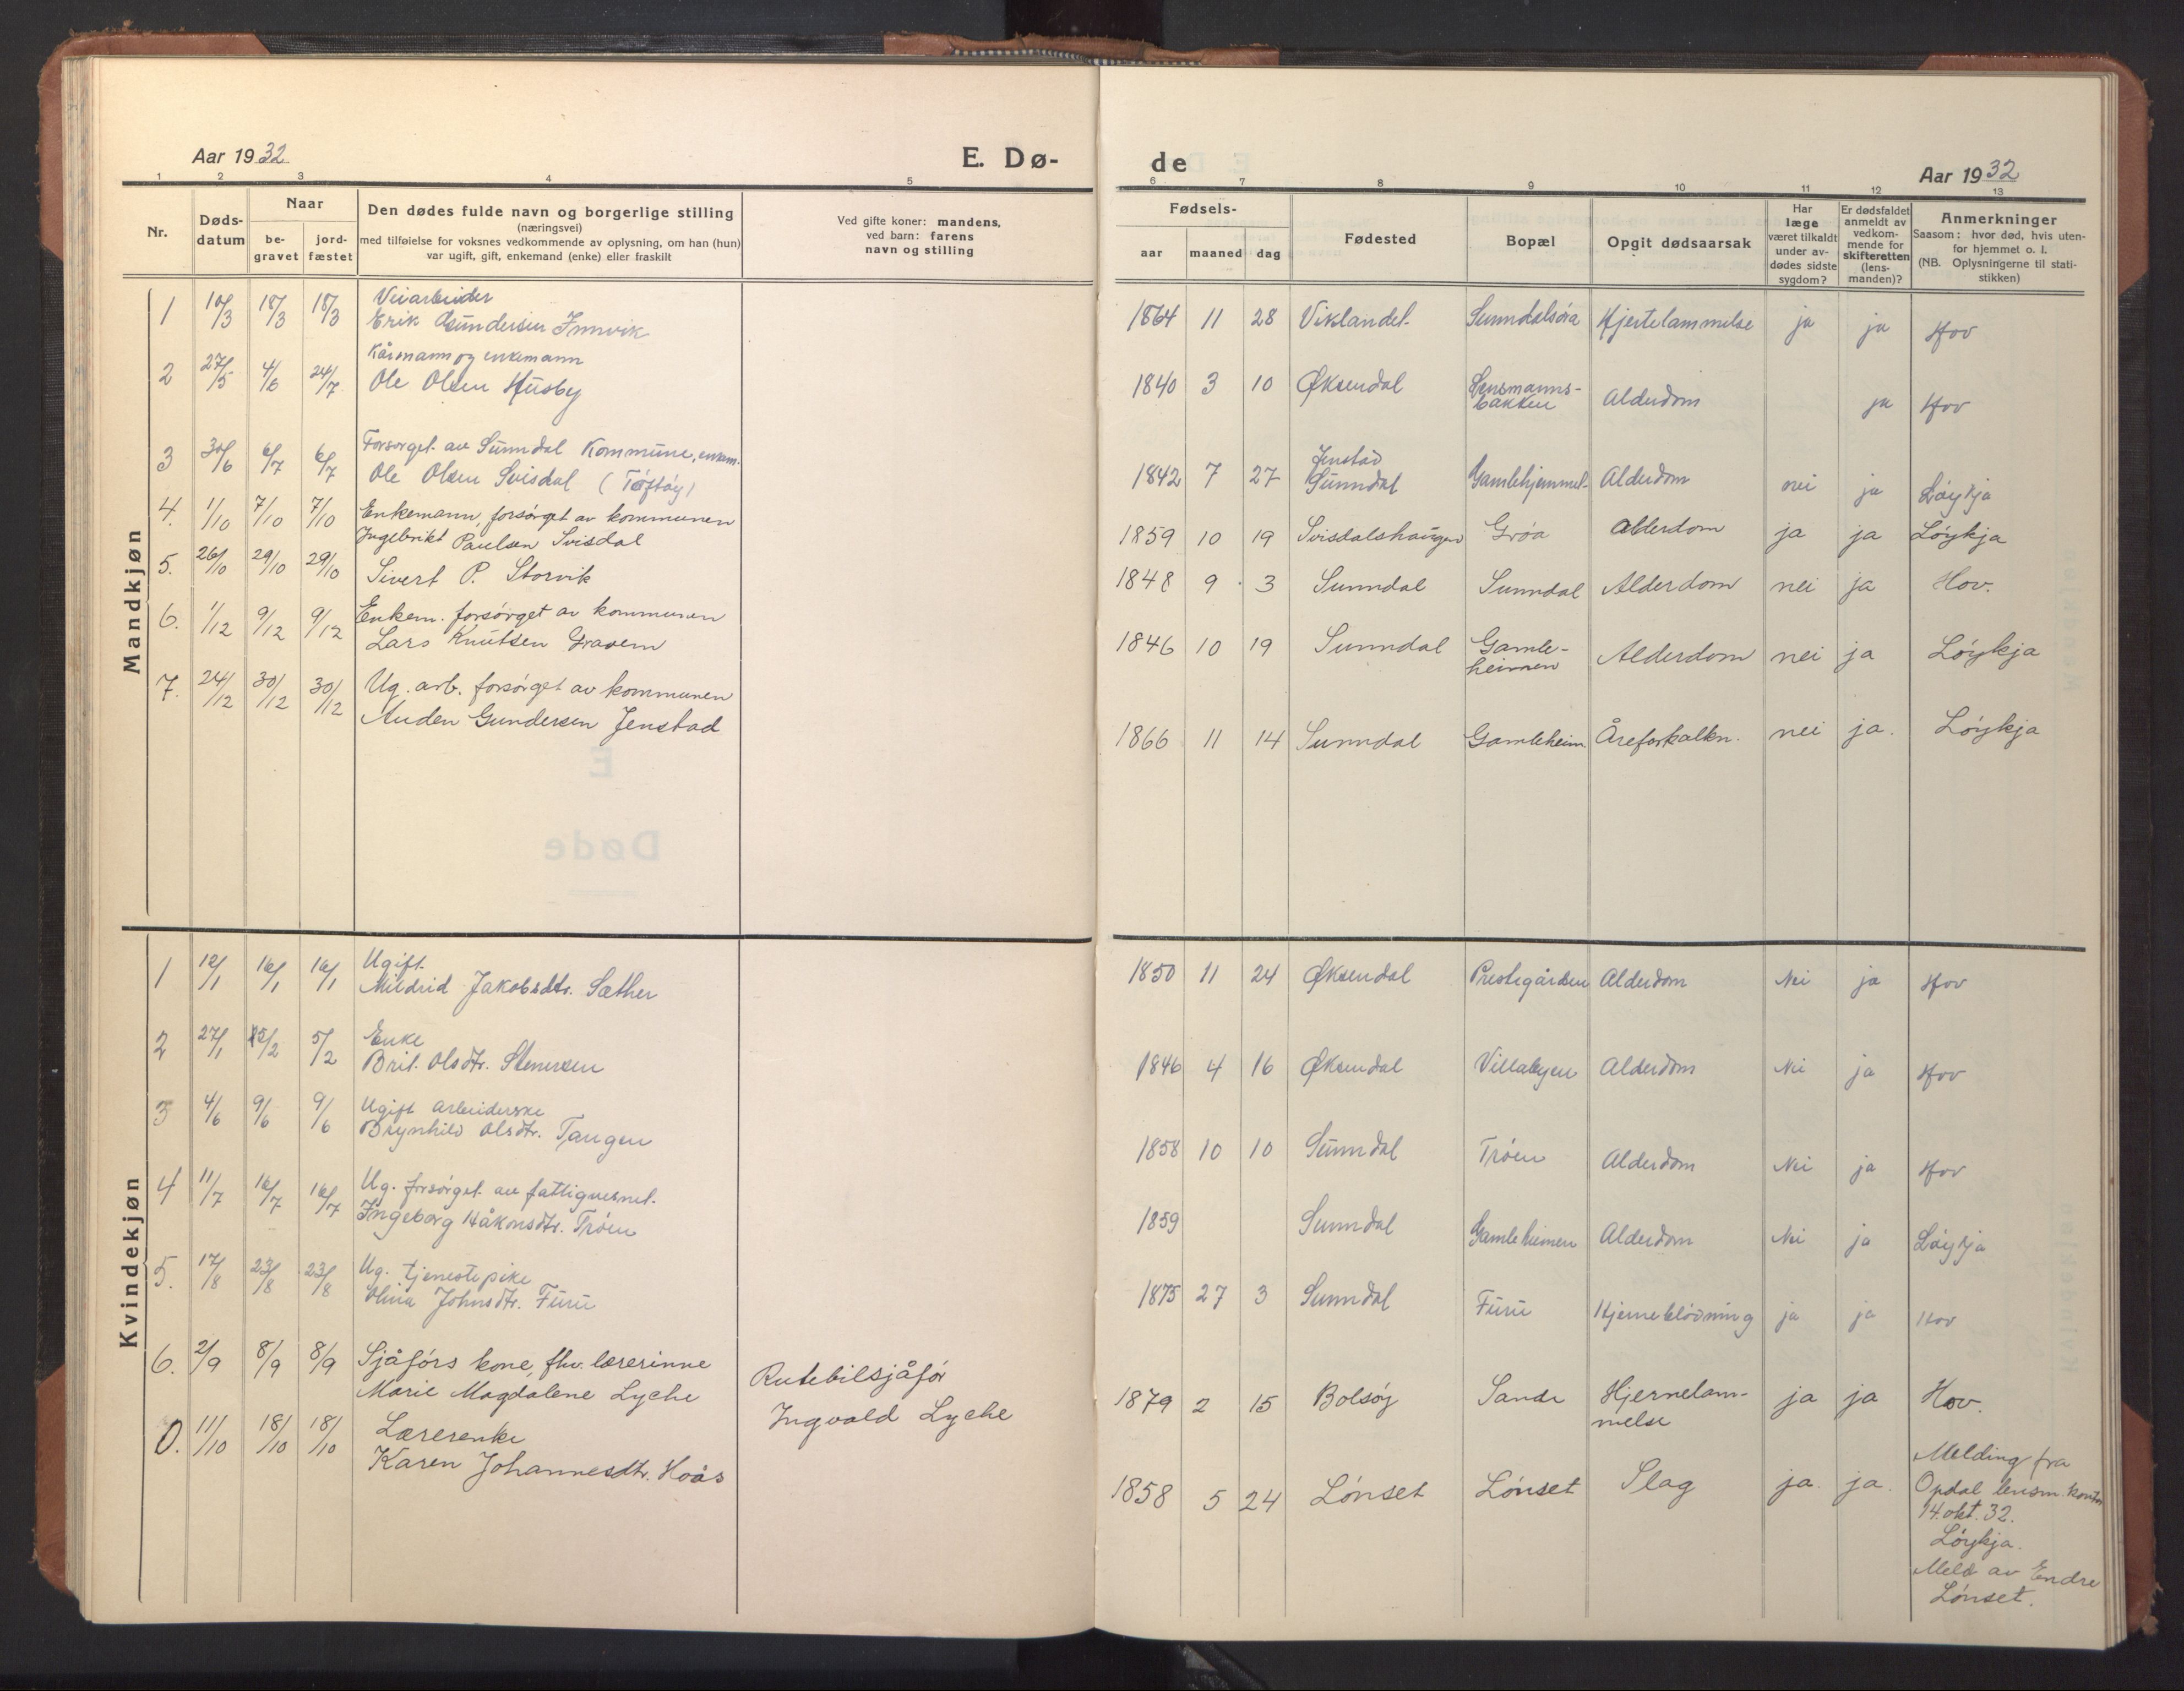 Aar 1932
E. Dø-
de
Aar 1932
1 2 3 4 5 6 7 8 9 10 11 12 13
Nr.
Døds-
datum
Naar
be-
gravet
jord-
fæstet
Den dødes fulde navn og borgerlige stilling
(næringsvei)
med tilføielse for voksnes vedkommende av oplysning, om han (hun)
var ugift, gift, enkemand (enke) eller fraskilt
Ved gifte koner: mandens,
ved barn: farens
navn og stilling
Fødsels-
aar maaned dag
Fødested
Bopæl
Opgit dødsaarsak
Har
læge
været tilkaldt
under av-
dødes sidste
sygdom?
Er dødsfaldet
anmeldt av
vedkom-
mende for
skifteretten
(lens-
manden)?
Anmerkninger
Saasom: hvor død, hvis uten-
for hjemmet o. l.
(NB. Oplysningerne til stati-
stikken)
Mandkjøn
Veiarbeider
1 10/3 18/3 18/3 Erik Gundersen Innvik 1864 11 28 Viklandet Sunndalsøra Hjertelammelse ja ja Hov
Kårmann og enkemann
2 27/5 4/6 24/7 Ole Olsen Husby 1840 3 10 Øksendal Lensmanns-
bakken Alderdom ja Hov
Forsørget av Sunndal Kommune, enkem.
3 30/6 6/7 6/7 Ole Olsen Svisdal (Tøftøy) 1842 7 27 Jenstad
Sunndal Gamlehjemmet Alderdom nei ja Løykja
4. 1/10 7/10 7/10 Enkemann, forsørget av kommunen
Ingebrikt Paulsen Svisdal 1859 10 19 Svisdalshaugen Grøa Alderdom ja ja Løykja
5. 26/10 29/10 29/10 Sivert P. Storvik 1848 9 3 Sunndal Sunndal Alderdom nei ja Hov.
6. 1/12 9/12 9/12 Enkem. forsørget av kommunen
Lars Knutsen Gravem 1846 10 19 Sunndal Gamle-
heimen Alderdom nei ja Løykja
7. 24/12 30/12 30/12 Ug. arb. forsørget av kommunen
Auden Gundersen Jenstad 1866 11 14 Sunndal Gamleheim Åreforkalkn. nei ja. Løykja
Kvindekjøn
1 12/1 16/1 16/1 Ugift
Mildrid Jakobsdtr. Sæther 1850 11 24 Øksendal Prestegården Alderdom Nei ja Hov
2 27/1 5/2 5/2 Enke
Brit Olsdtr. Stenersen 1846 4 16 Øksendal Villabyen Alderdom Nei ja Hov
3 4/6 9/6 9/6 Ugift arbeiderske
Brynhild Olsdtr. Tangen 1858 10 10 Sunndal Trøen Alderdom Nei ja Hov
4 11/7 16/7 16/7 Ug. forsørget av fattigvesnet.
Ingeborg Håkonsdtr. Trøen 1859 Sunndal Gamleheimen Alderdom Nei ja Løykja
5. 17/8 23/8 23/8 Ug. tjenestepike
Olina Johnsdtr. Furu 1875 27 3 Sunndal Furu Hjerneblødning ja ja Hov
6. 2/9 8/9 8/9 Sjåførs kone, fhv. lærerinne
Marie Magdalene Lyche Rutebilsjåfør
Ingvald Lyche 1879 2 15 Bolsøy Sande Hjernelam-
melse ja ja Hov.
0. 11/10 18/10 18/10 Lærerenke
Karen Johannesdtr. Hoås 1858 5 24 Lønset Lønset Slag ja. ja. Melding fra
Opdal lensm. kontor
14. okt. 32.
Løykja.
Meld av Endre
Lønset.